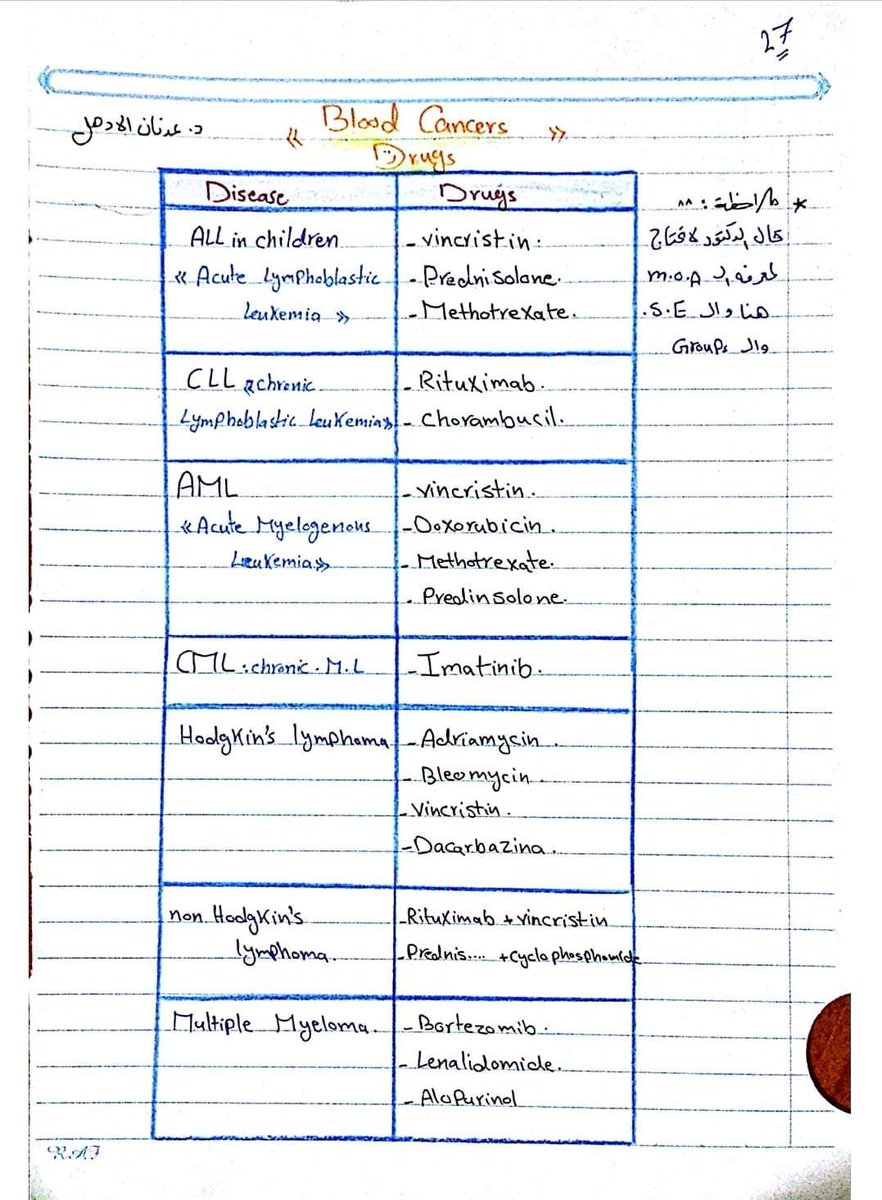 27
د. عدنان الادهل
« Blood Cancers »
Drugs
Disease
Drugs
ALL in children
« Acute Lymphoblastic
Leukemia »
- vincristin.
- Prednisolone.
- Methotrexate.
CLL « chronic
Lymphoblastic Leukemia»
- Rituximab.
- Chorambucil.
AML
« Acute Myelogenous
Leukemia»
- vincristin.
- Doxorubicin.
- Methotrexate.
. Predinsolone.
CML : chronic . M.L
- Imatinib.
Hodgkin's lymphoma
- Adriamycin .
- Bleomycin .
- Vincristin .
- Dacarbazina .
non Hodgkin's
lymphoma.
- Rituximab + vincristin
- Prednis.... + cyclophosphamide
Multiple Myeloma.
- Bortezomib.
- Lenalidomide.
- Alopurinol
* ملاحظة : ^^
قال الدكتور لا نحتاج
لمعرفة الـ M.O.A
هنا والـ S.E.
والـ Groups
R.A.F